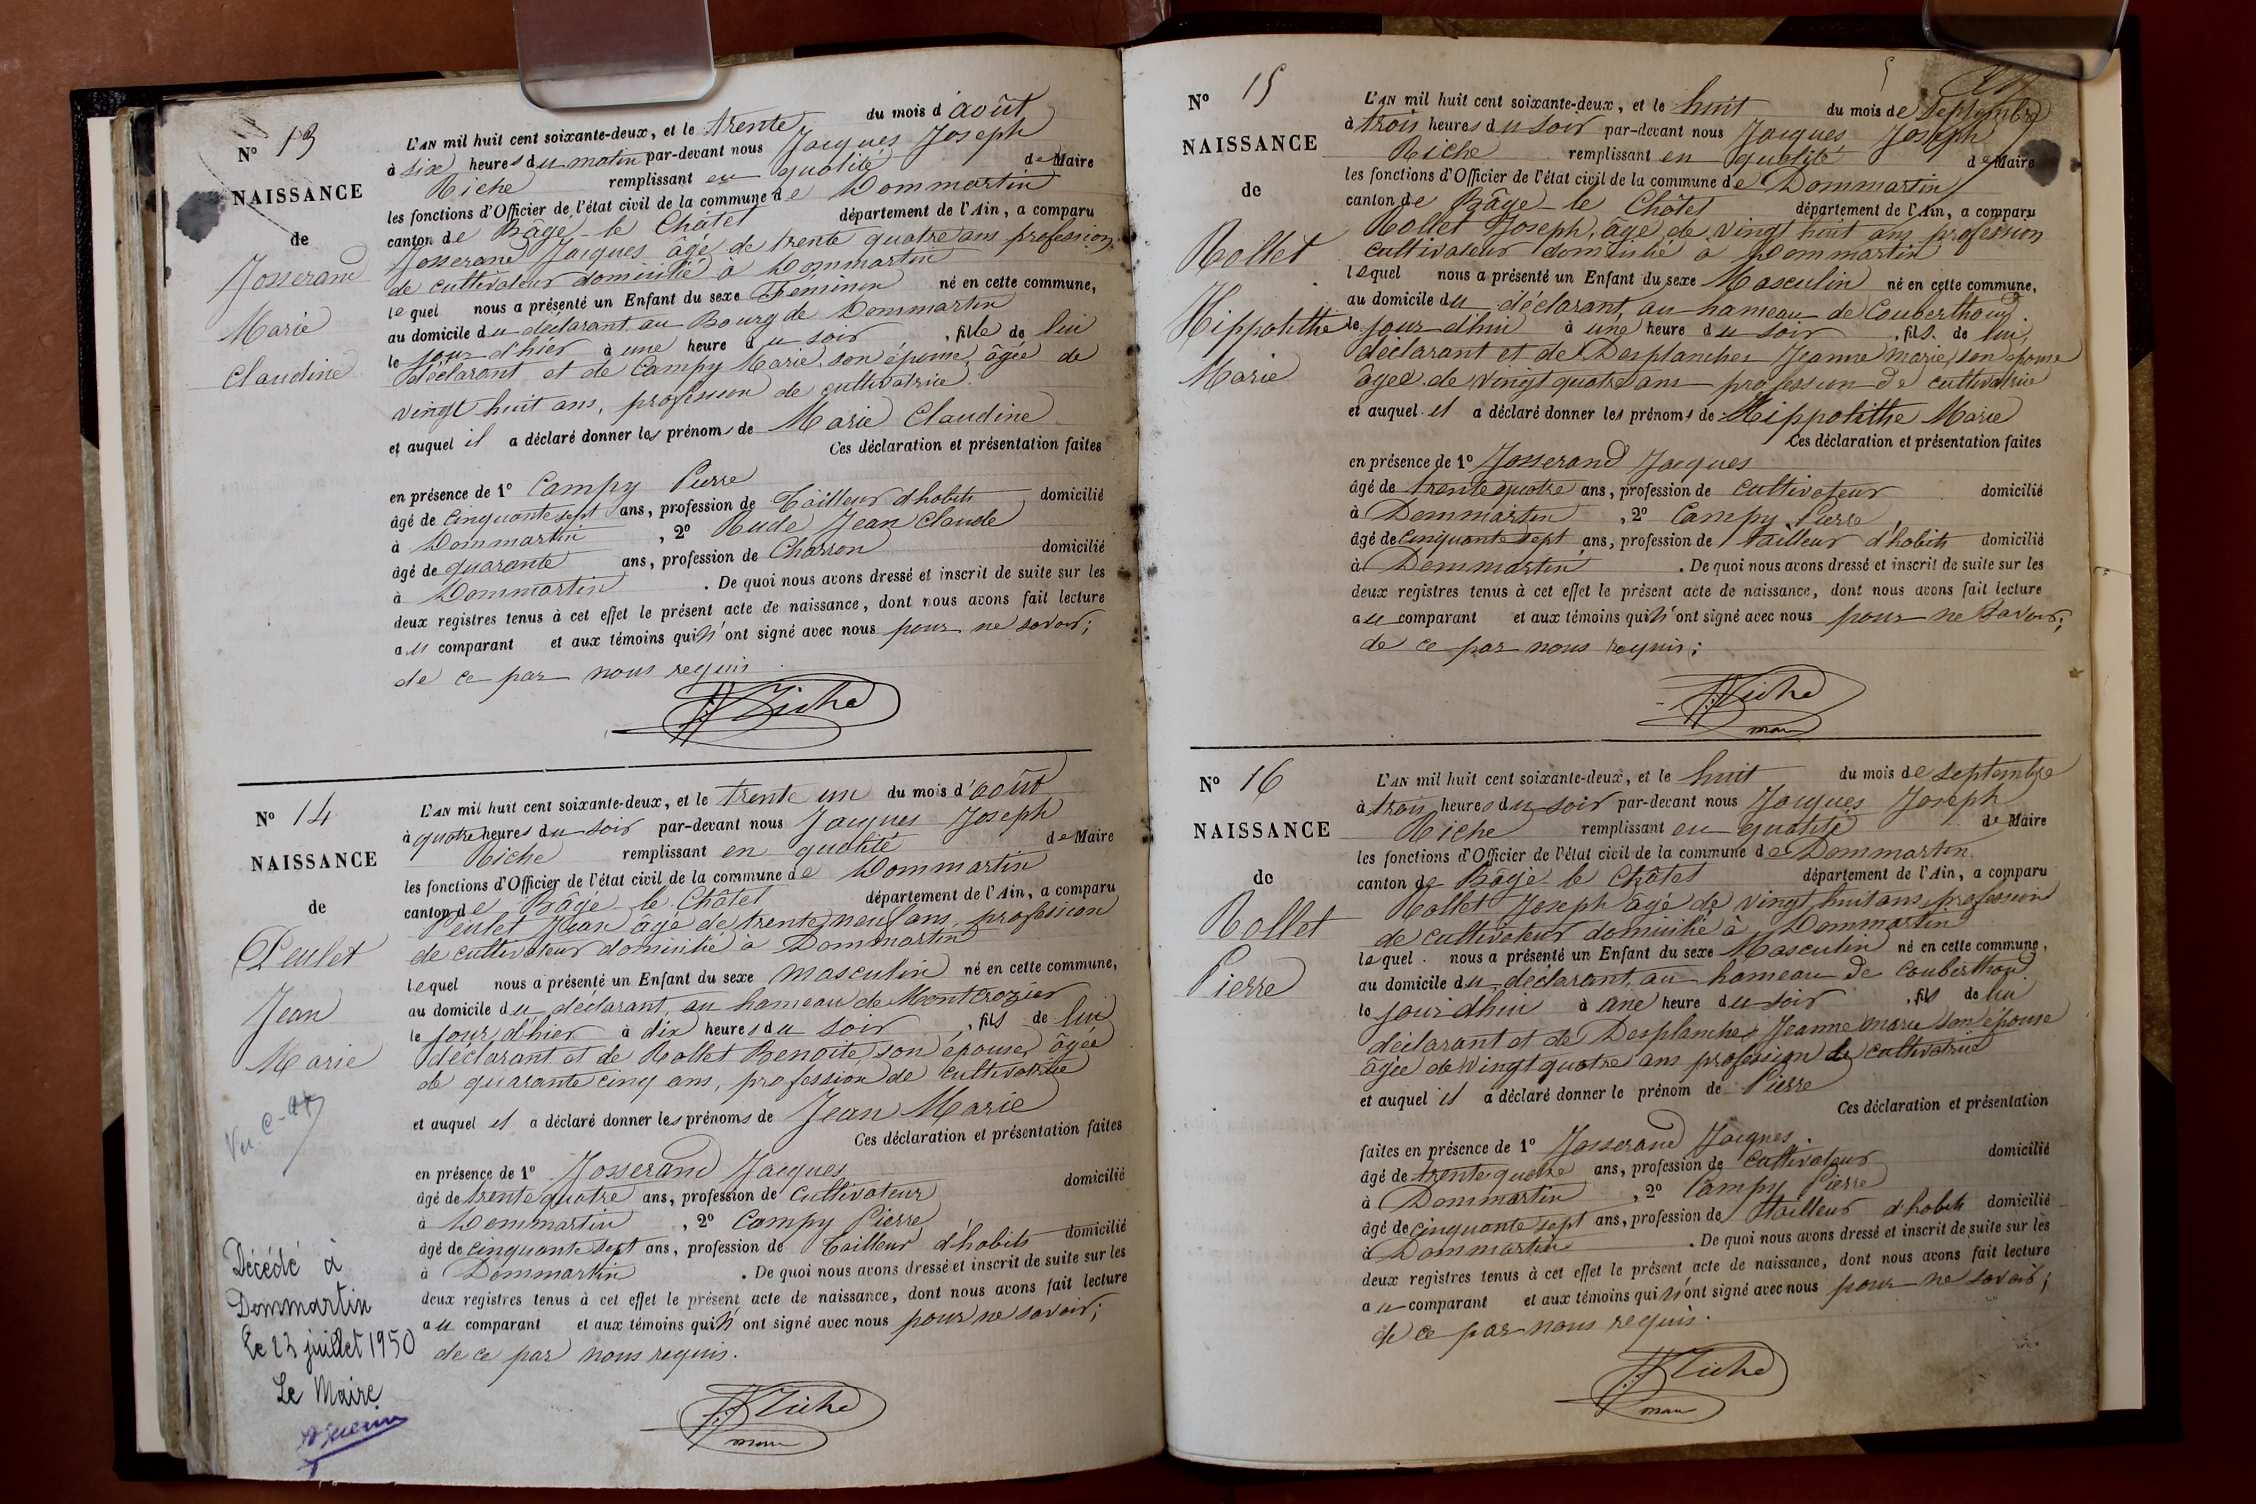 N° 13
NAISSANCE
de
Josserand
Marie
Claudine
L'AN mil huit cent soixante-deux, et le trente du mois d'août
à six heures du matin par-devant nous Jacques Joseph
Riche remplissant en qualité de Maire
les fonctions d'Officier de l'état civil de la commune de Dommartin
canton de Bâgé-le Châtel département de l'Ain, a comparu
Josserand Jacques âgé de trente quatre ans profession
de cultivateur domicilié à Dommartin
lequel nous a présenté un Enfant du sexe Feminin né en cette commune,
au domicile du déclarant au Bourg de Dommartin
le jour d'hier à une heure du soir, fille de lui
déclarant et de Campy Marie son épouse, âgée de
vingt huit ans, profession de cultivatrice
et auquel il a déclaré donner les prénoms de Marie Claudine
Ces déclaration et présentation faites
en présence de 1° Campy Pierre
âgé de cinquante sept ans, profession de Tailleur d'habits domicilié
à Dommartin, 2° Rude Jean Claude
âgé de quarante ans, profession de Charron domicilié
à Dommartin. De quoi nous avons dressé et inscrit de suite sur les
deux registres tenus à cet effet le présent acte de naissance, dont nous avons fait lecture
au comparant et aux témoins qui n'ont signé avec nous pour ne savoir;
de ce par nous requis
JJ Riche
N° 14
NAISSANCE
de
Peulet
Jean
Marie
Décédé à
Dommartin
Le 23 juillet 1950
Le Maire
L'AN mil huit cent soixante-deux, et le trente un du mois d'août
à quatre heures du soir par-devant nous Jacques Joseph
Riche remplissant en qualité de Maire
les fonctions d'Officier de l'état civil de la commune de Dommartin
canton de Bâgé le Châtel département de l'Ain, a comparu
Peulet Jean âgé de trente neuf ans profession
de cultivateur domicilié à Dommartin
lequel nous a présenté un Enfant du sexe masculin né en cette commune,
au domicile du déclarant, au hameau de Montcrozier
le jour d'hier à dix heures du soir, fils de lui
déclarant et de Rollet Benoite, son épouse, âgée
de quarante cinq ans, profession de cultivatrice
et auquel il a déclaré donner les prénoms de Jean Marie
Ces déclaration et présentation faites
en présence de 1° Josserand Jacques
âgé de trente quatre ans, profession de Cultivateur domicilié
à Dommartin, 2° Campy Pierre
âgé de cinquante sept ans, profession de Tailleur d'habits domicilié
à Dommartin. De quoi nous avons dressé et inscrit de suite sur les
deux registres tenus à cet effet le présent acte de naissance, dont nous avons fait lecture
au comparant et aux témoins qui n'ont signé avec nous pour ne savoir;
de ce par nous requis.
JJ Riche
maire
N° 15
NAISSANCE
de
Rollet
Hippolithe
Marie
L'AN mil huit cent soixante-deux, et le huit du mois de septembre
à trois heures du soir par-devant nous Jacques Joseph
Riche remplissant en qualité de Maire
les fonctions d'Officier de l'état civil de la commune de Dommartin
canton de Bâgé-le Châtel département de l'Ain, a comparu
Rollet Joseph, âgé de vingt huit ans profession
cultivateur domicilié à Dommartin
lequel nous a présenté un Enfant du sexe Masculin né en cette commune,
au domicile du déclarant, au hameau de Couberthoud.
le jour d'hui à une heure du soir, fils de lui,
déclarant et de Desplanches Jeanne marie, son épouse
âgée de vingt quatre ans profession de cultivatrice
et auquel il a déclaré donner les prénoms de Hippolithe Marie
Ces déclaration et présentation faites
en présence de 1° Josserand Jacques
âgé de trente quatre ans, profession de cultivateur domicilié
à Dommartin, 2° Campy Pierre
âgé de cinquante sept ans, profession de tailleur d'habits domicilié
à Dommartin. De quoi nous avons dressé et inscrit de suite sur les
deux registres tenus à cet effet le présent acte de naissance, dont nous avons fait lecture
au comparant et aux témoins qui n'ont signé avec nous pour ne savoir;
de ce par nous requis;
JJ Riche
maire
N° 16
NAISSANCE
de
Rollet
Pierre
L'AN mil huit cent soixante-deux, et le huit du mois de septembre
à trois heures du soir par-devant nous Jacques Joseph
Riche remplissant en qualité de Maire
les fonctions d'Officier de l'état civil de la commune de Dommartin
canton de Bâgé-le Châtel département de l'Ain, a comparu
Rollet Joseph âgé de vingt huit ans profession
de cultivateur domicilié à Dommartin
lequel nous a présenté un Enfant du sexe Masculin né en cette commune,
au domicile du déclarant, au hameau de Couberthoud
le jour d'hui à une heure du soir, fils de lui
déclarant et de Desplanches Jeanne marie son épouse
âgée de vingt quatre ans profession de cultivatrice
et auquel il a déclaré donner le prénom de Pierre
Ces déclaration et présentation
faites en présence de 1° Josserand Jacques.
âgé de trente quatre ans, profession de cultivateur domicilié
à Dommartin, 2° Campy Pierre
âgé de cinquante sept ans, profession de tailleur d'habits domicilié
à Dommartin. De quoi nous avons dressé et inscrit de suite sur les
deux registres tenus à cet effet le présent acte de naissance, dont nous avons fait lecture
au comparant et aux témoins qui n'ont signé avec nous pour ne savoir;
de ce par nous requis.
JJ Riche
maire